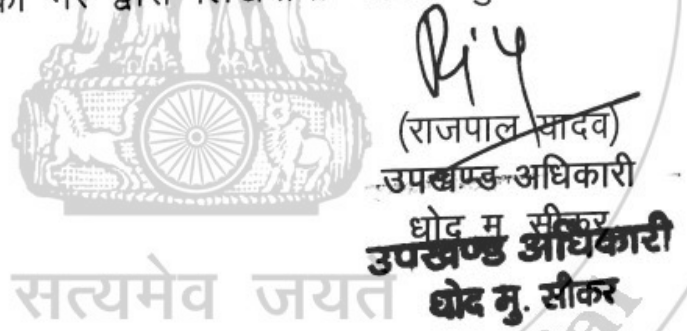 द्वारा
(राजपाल यादव)
उपखण्ड अधिकारी
धोद मु. सीकर
उपखण्ड अधिकारी
धोद मु. सीकर
सत्यमेव जयते